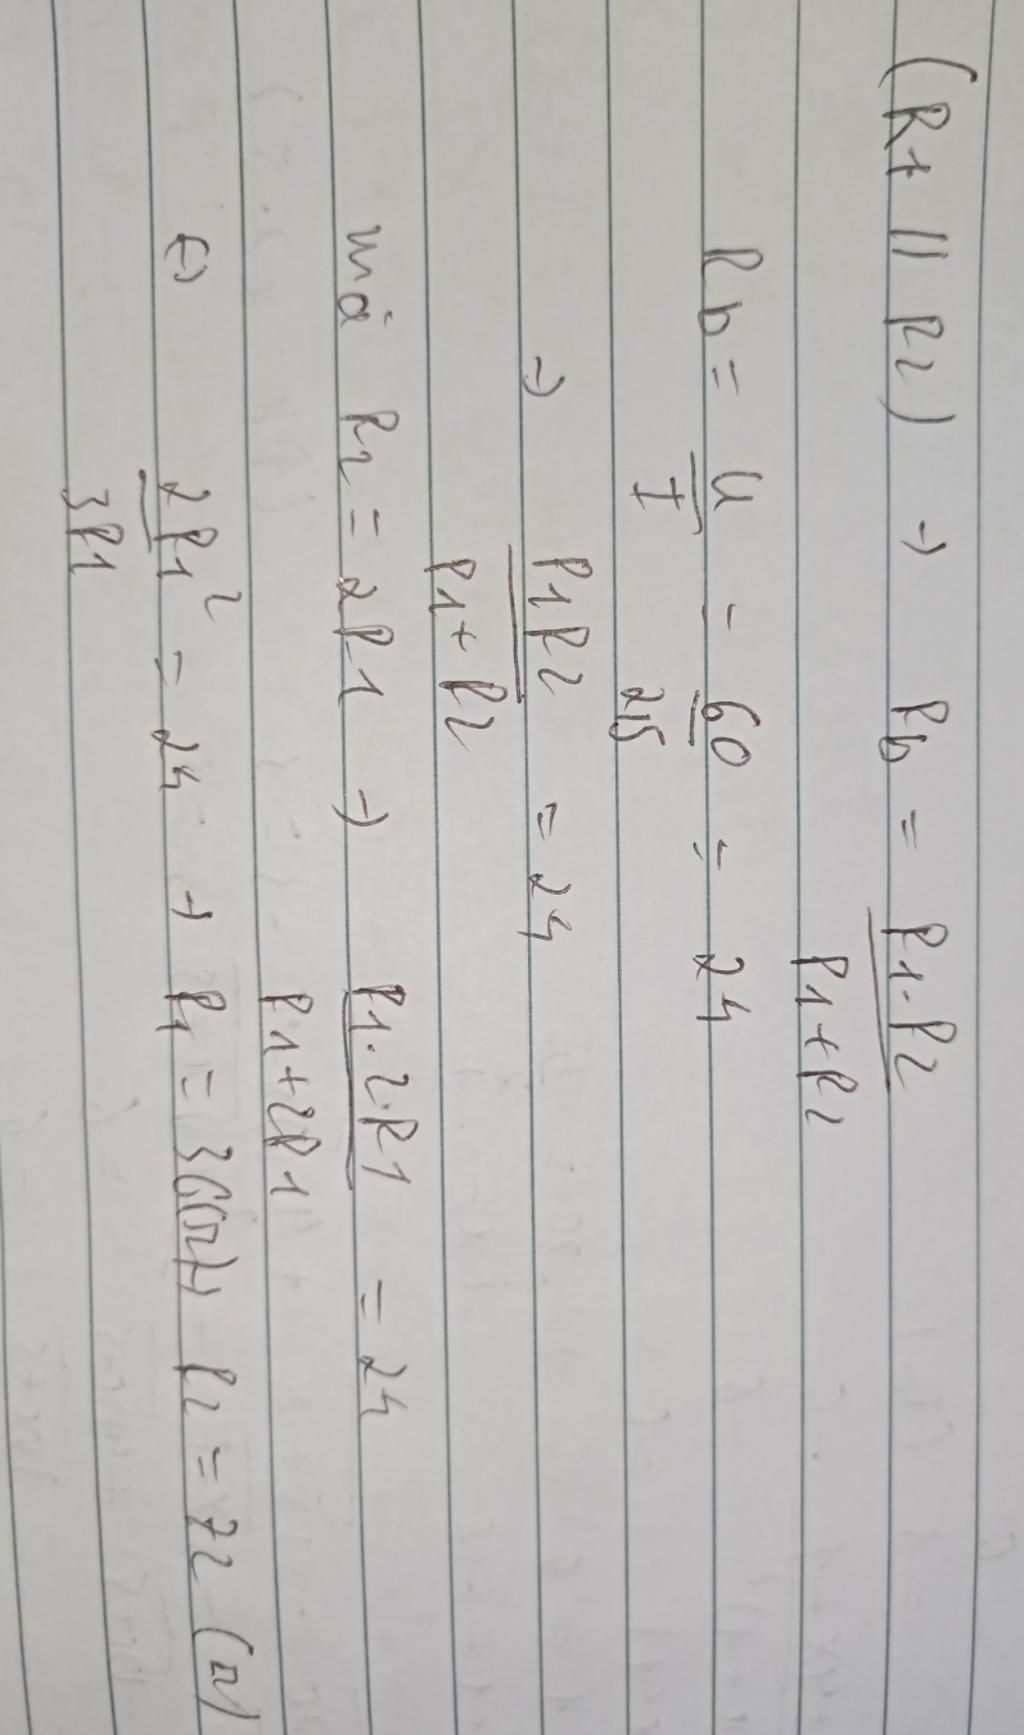 (R1 // R2) → Rb = R1.R2 / R1+R2
Rb = U / I = 60 / 2,5 = 24
→ R1R2 / R1+R2 = 24
mà R2 = 2R1 → R1.2.R1 / R1+2R1 = 24
↔ 2R1² / 3R1 = 24 → R1 = 36(Ω) R2 = 72 (Ω)